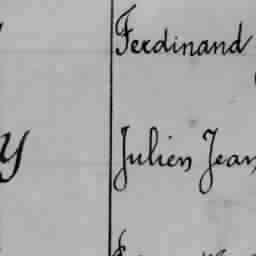 Ferdinand
y Julien Jean